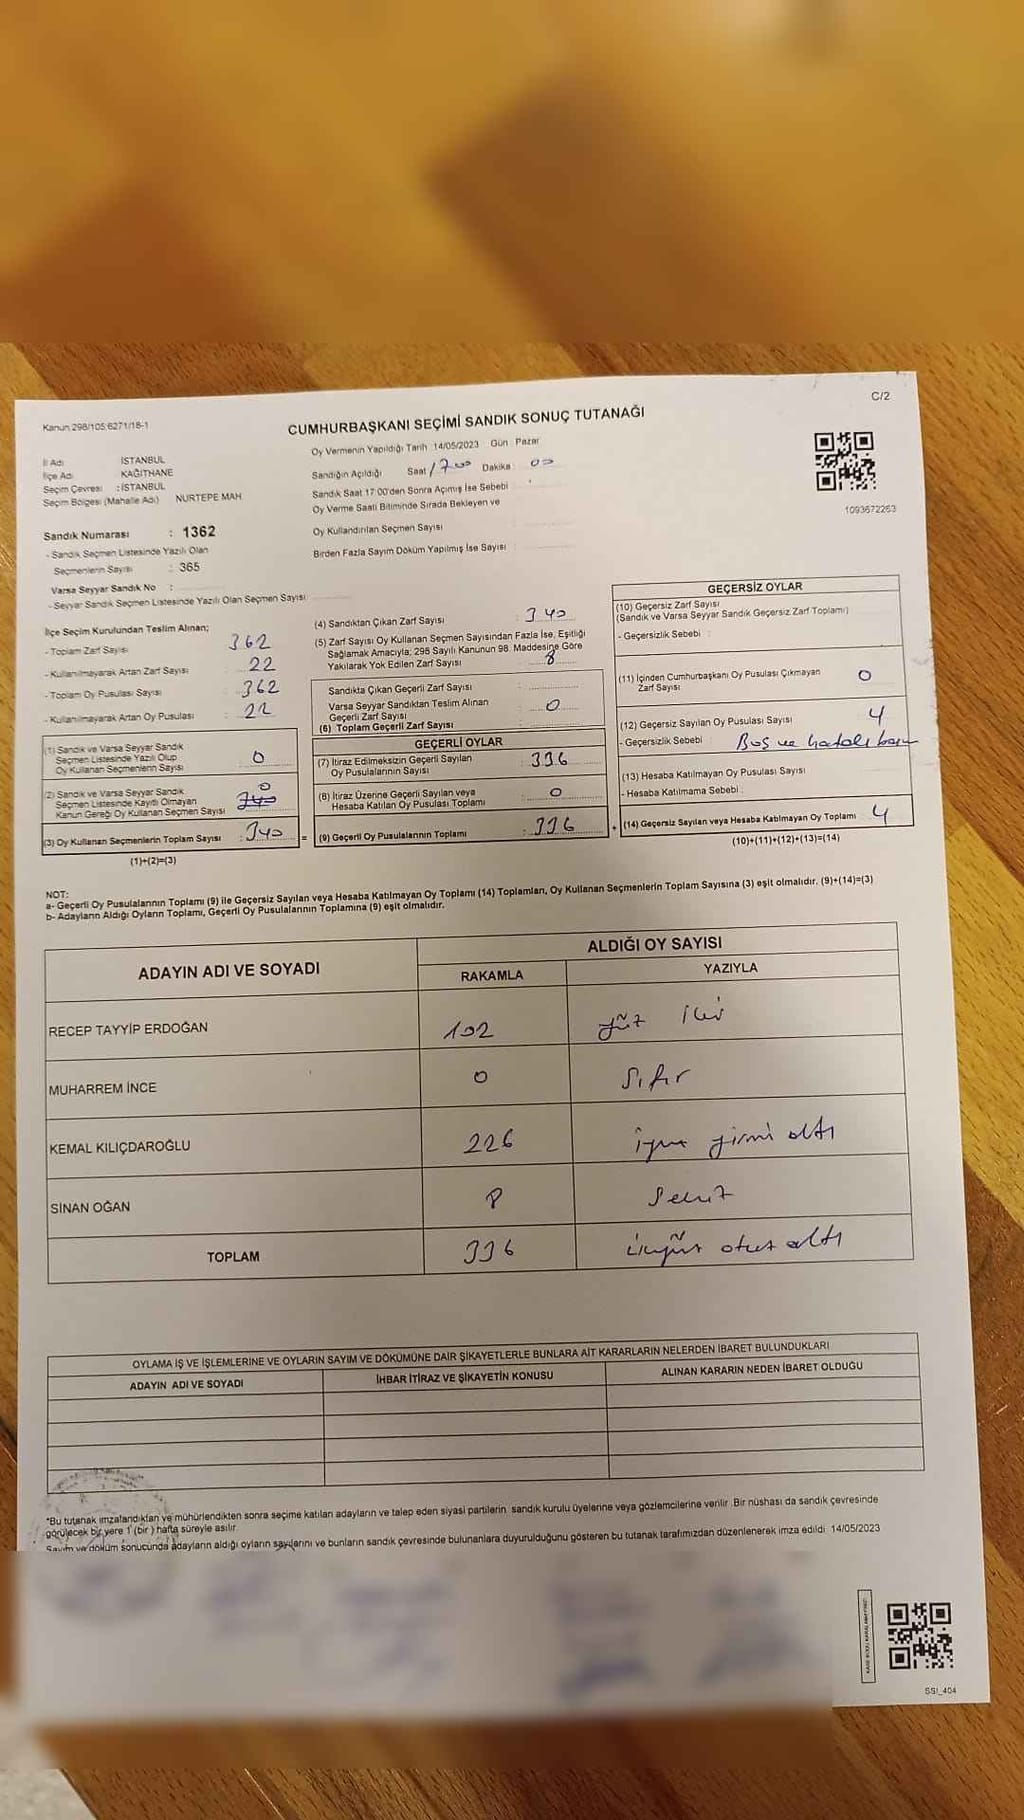 C/2
Kanun 298/105 6271/18-1
CUMHURBAŞKANI SEÇİMİ SANDIK SONUÇ TUTANAĞI
İl Adı İSTANBUL
İlçe Adı KAĞITHANE
Seçim Çevresi : İSTANBUL
Seçim Bölgesi (Mahalle Adı) NURTEPE MAH
Oy Vermenin Yapıldığı Tarih 14/05/2023 Gün : Pazar
Sandığın Açıldığı Saat 1700 Dakika : 00
Sandık Saat 17:00'den Sonra Açımış İse Sebebi
Oy Verme Saati Bitiminde Sırada Bekleyen ve
Oy Kullandırılan Seçmen Sayısı
Birden Fazla Sayım Döküm Yapılmış İse Sayısı :
1093672263
Sandık Numarası : 1362
- Sandık Seçmen Listesinde Yazılı Olan
Seçmenlerin Sayısı : 365
Varsa Seyyar Sandık No :
- Seyyar Sandık Seçmen Listesinde Yazılı Olan Seçmen Sayısı
İlçe Seçim Kurulundan Teslim Alınan;
- Toplam Zarf Sayısı 362
- Kullanılmayarak Artan Zarf Sayısı 22
- Toplam Oy Pusulası Sayısı 362
- Kullanılmayarak Artan Oy Pusulası 22
(1) Sandık ve Varsa Seyyar Sandık
Seçmen Listesinde Yazılı Olup
Oy Kullanan Seçmenlerin Sayısı 0
(2) Sandık ve Varsa Seyyar Sandık
Seçmen Listesinde Kaydı Olmayan
Kanun Gereği Oy Kullanan Seçmen Sayısı 340 0
(3) Oy Kullanan Seçmenlerin Toplam Sayısı : 340 =
(1)+(2)=(3)
(4) Sandıktan Çıkan Zarf Sayısı : 340
(5) Zarf Sayısı Oy Kullanan Seçmen Sayısından Fazla İse, Eşitliği
Sağlamak Amacıyla; 298 Sayılı Kanunun 98. Maddesine Göre
Yakılarak Yok Edilen Zarf Sayısı : 8
Sandıkta Çıkan Geçerli Zarf Sayısı
Varsa Seyyar Sandıktan Teslim Alınan
Geçerli Zarf Sayısı : 0
(6) Toplam Geçerli Zarf Sayısı
GEÇERLİ OYLAR
(7) İtiraz Edilmeksizin Geçerli Sayılan
Oy Pusulasının Sayısı : 336
(8) İtiraz Üzerine Geçerli Sayılan veya
Hesaba Katılan Oy Pusulası Toplamı : 0
(9) Geçerli Oy Pusulalarının Toplamı : 336 +
GEÇERSİZ OYLAR
(10) Geçersiz Zarf Sayısı
(Sandık ve Varsa Seyyar Sandık Geçersiz Zarf Toplamı)
- Geçersizlik Sebebi :
(11) İçinden Cumhurbaşkanı Oy Pusulası Çıkmayan
Zarf Sayısı 0
(12) Geçersiz Sayılan Oy Pusulası Sayısı 4
- Geçersizlik Sebebi Boş ve hatalı basım
(13) Hesaba Katılmayan Oy Pusulası Sayısı
- Hesaba Katılmama Sebebi :
(14) Geçersiz Sayılan veya Hesaba Katılmayan Oy Toplamı 4
(10)+(11)+(12)+(13)=(14)
NOT:
a- Geçerli Oy Pusulalarının Toplamı (9) ile Geçersiz Sayılan veya Hesaba Katılmayan Oy Toplamı (14) Toplamları, Oy Kullanan Seçmenlerin Toplam Sayısına (3) eşit olmalıdır. (9)+(14)=(3)
b- Adayların Aldığı Oyların Toplamı, Geçerli Oy Pusulalarının Toplamına (9) eşit olmalıdır.
ADAYIN ADI VE SOYADI ALDIĞI OY SAYISI
RAKAMLA YAZIYLA
RECEP TAYYİP ERDOĞAN 102 yüz iki
MUHARREM İNCE 0 Sıfır
KEMAL KILIÇDAROĞLU 226 yirmi altı
SİNAN OĞAN 8 Sekiz
TOPLAM 336 üçyüz otuz altı
OYLAMA İŞ VE İŞLEMLERİNE VE OYLARIN SAYIM VE DÖKÜMÜNE DAİR ŞİKAYETLERLE BUNLARA AİT KARARLARIN NELERDEN İBARET BULUNDUKLARI
ADAYIN ADI VE SOYADI İHBAR İTİRAZ VE ŞİKAYETİN KONUSU ALINAN KARARIN NEDEN İBARET OLDUĞU
*Bu tutanak imzalandıktan ve mühürlendikten sonra seçime katılan adayların ve talep eden siyasi partilerin sandık kurulu üyelerine veya gözlemcilerine verilir. Bir nüshası da sandık çevresinde
görülecek bir yere 1 (bir) hafta süreyle asılır.
Sayım ve döküm sonucunda adayların aldığı oyların sayılarını ve bunların sandık çevresinde bulunanlara duyurulduğunu gösteren bu tutanak tarafımızdan düzenlenerek imza edildi. 14/05/2023
SSI_404